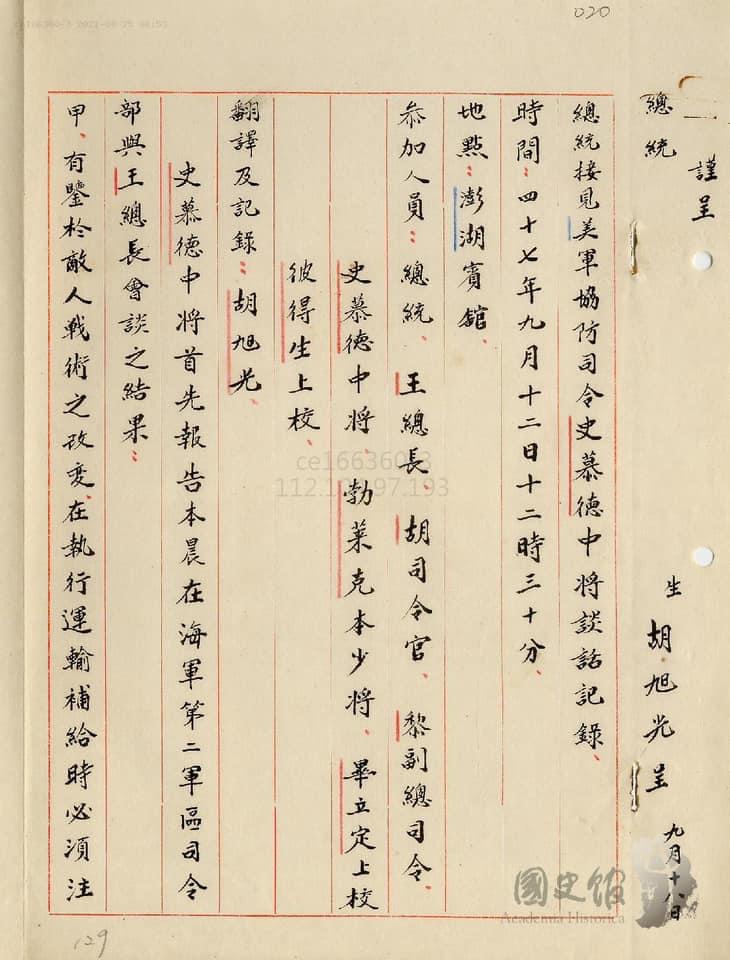 020
謹呈
總統
生 胡旭光呈 九月十八日
總統接見美軍協防司令史慕德中將談話記錄、
時間：四十七年九月十二日十二時三十分、
地點：澎湖賓館、
參加人員：總統、王總長、胡司令官、黎副總司令、
史慕德中將、勃萊克本少將、畢立定上校
彼得生上校、
翻譯及記錄：胡旭光、
史慕德中將首先報告本晨在海軍第二軍區司令
部與王總長會談之結果：
甲、有鑒於敵人戰術之改變、在執行運輸補給時必須注
129
國史館
Academia Historica